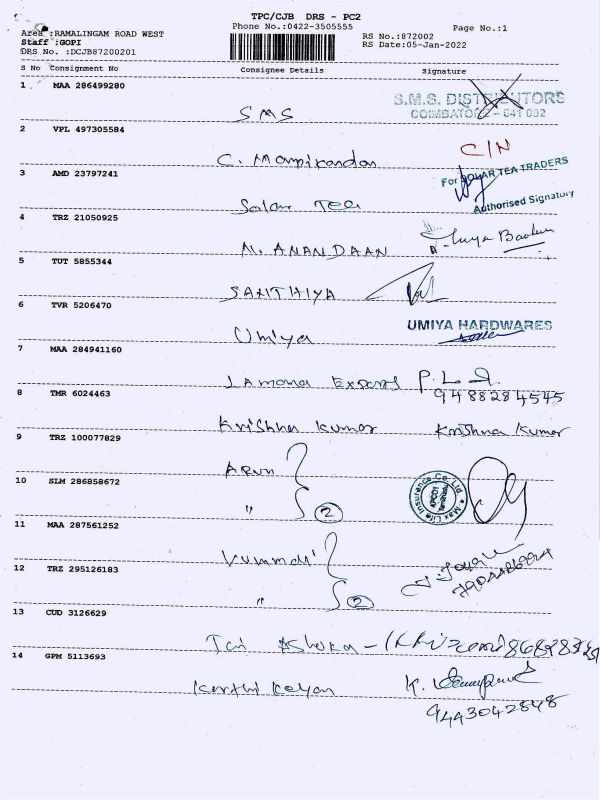 TPC/CJB DRS - PC2
Phone No.:0422-3505555
Page No.:1
Area :RAMALINGAM ROAD WEST
Staff :GOPI
DRS No. :DCJB87200201
RS No.:872002
RS Date:05-Jan-2022
S No Consignment No Consignee Details Signature
1 MAA 286499280
SMS
S.M.S. DISTRIBUTORS
COIMBATORE - 641 002
2 VPL 497305584
C. Manikandan
C/N
3 AMD 23797241
Salar Tea
TEA TRADERS
Authorised Signatory
4 TRZ 21050925
M. ANANDAAN
5 TUT 5855344
SANTHIYA
6 TVR 5206470
Umiya
UMIYA HARDWARES
7 MAA 284941160
Exports
9488284545
8 TMR 6024463
Krishna Kumar Krishna Kumar
9 TRZ 100077829
Arun
10 SLM 286858672
" 2
Max Life Insurance Co. Ltd.
11 MAA 287561252
12 TRZ 295126183
" 2
13 CUD 3126629
Ashoka
14 GPM 5113693
Karthi Keyan
9443042848